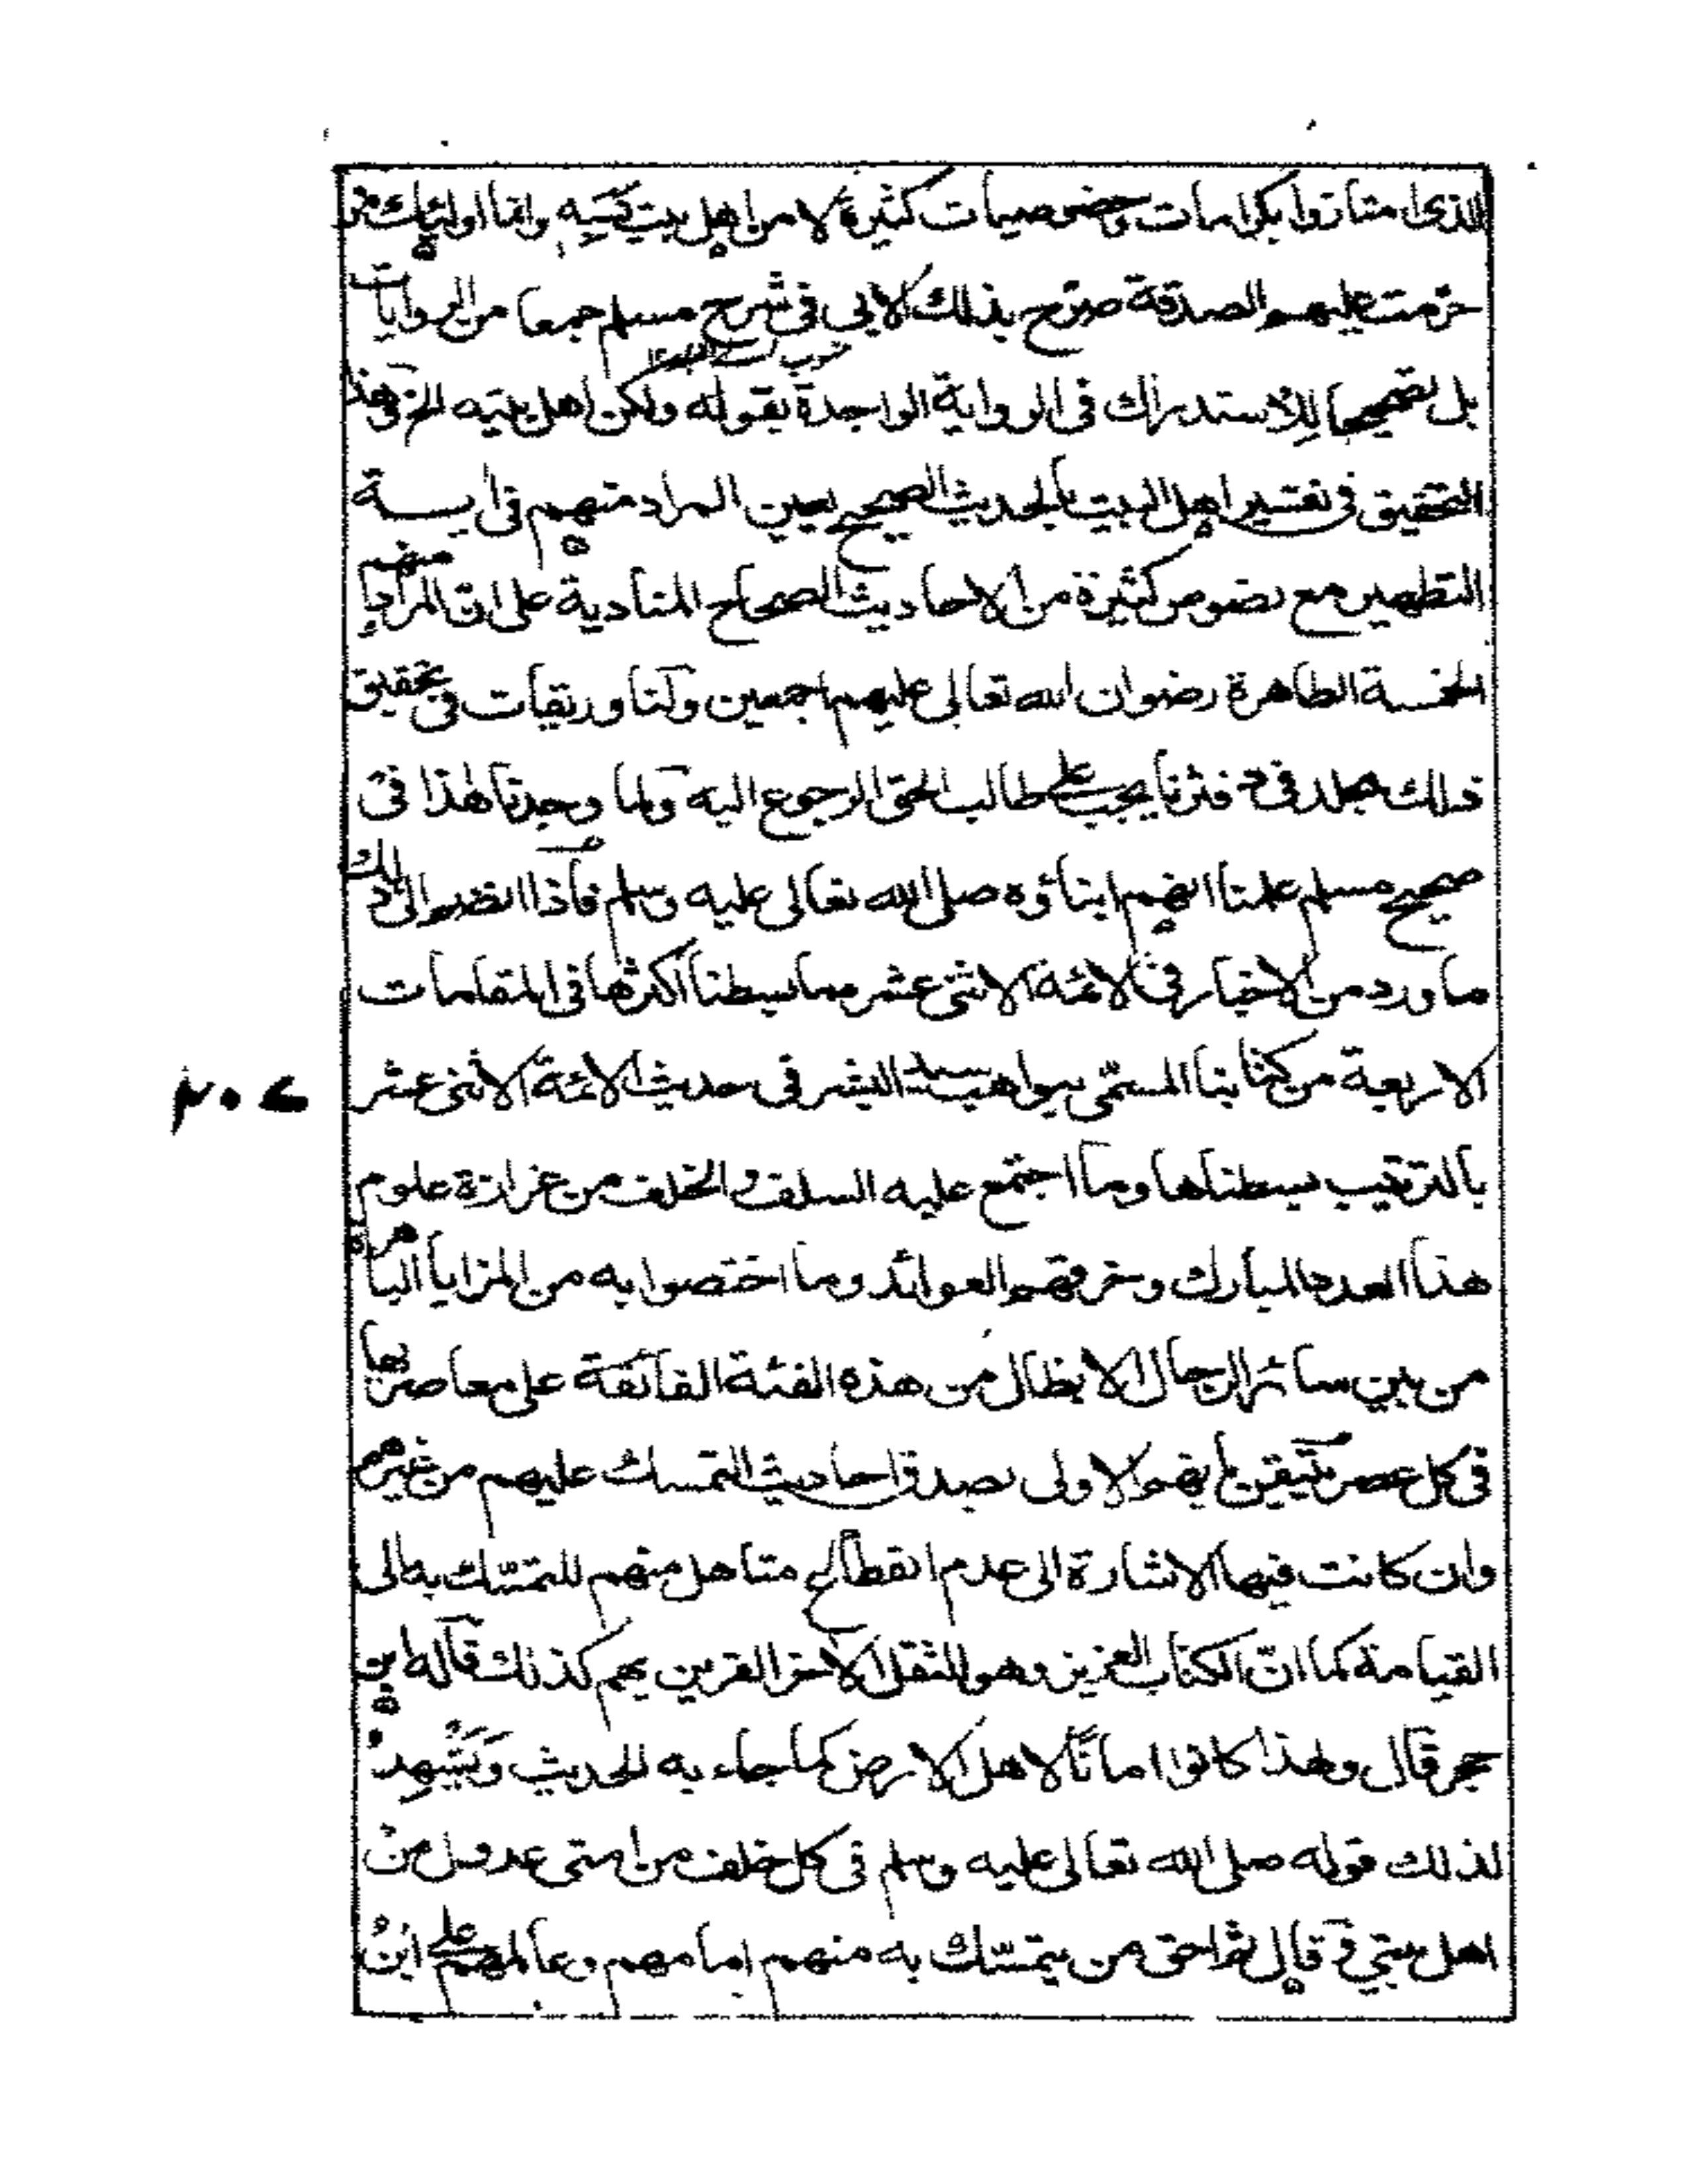 الذى امتازوا بكرامات وخصوصيات كثيرة لا من اهل بيت نسبه وانما اولئك من
حرمت عليهم الصدقة صرّح بذلك الابى فى شرح مسلم جمعا من الروايات
بل تصحيحا للاستدراك فى الرواية الواحدة بقوله ولكن اهل بيته الخ فهذا
التحقيق فى تفسير اهل البيت بالحديث الصحيح يعين المراد منهم فى اية
التطهير مع نصوص كثيرة من الاحاديث الصحاح المنادية على ان المراد منهم
الخمسة الطاهرة رضوان الله تعالى عليهم اجمعين ولنا وريقات فى تحقيق
ذلك مجلد فى دفترنا يجب على طالب الحق الرجوع اليه ولما وجدنا هذا فى
صحيح مسلم علمنا انهم ابناؤه صلى الله تعالى عليه وسلم فاذا انضم الى ذلك
ما ورد من الاخبار فى الائمة الاثنى عشر مما بسطنا اكثرها فى المقامات
الاربعة من كتابنا المسمّى بمواهب سيد البشر فى حديث الائمة الاثنى عشر
٢٠٧
بالترتيب بسطناها وما اجتمع عليه السلف والخلف من غزارة علوم
هذا العدد المبارك وخرقهم العوائد وما اختصوا به من المزايا الباهرة
من بين سائر الرجال الابطال من هذه الفئة الفائقة على معاصريها
فى كل عصر تيقن بانهم الاولى بصدق احاديث التمسك عليهم من غيرهم
وان كانت فيها الاشارة الى عدم انقطاع متاهل منهم للتمسّك به الى
القيامة كما انّ الكتاب العزيز وهو الثقل الاخر القرين بهم كذلك قاله ابن
حجر قال ولهذا كانوا امانًا لاهل الارض كما جاء به الحديث ويشهد
لذلك قوله صلى الله تعالى عليه وسلم فى كل خلف من امتى عدول من
اهل بيتي وقال ثم احق من يتمسّك به منهم امامهم وعالمهم على ابن